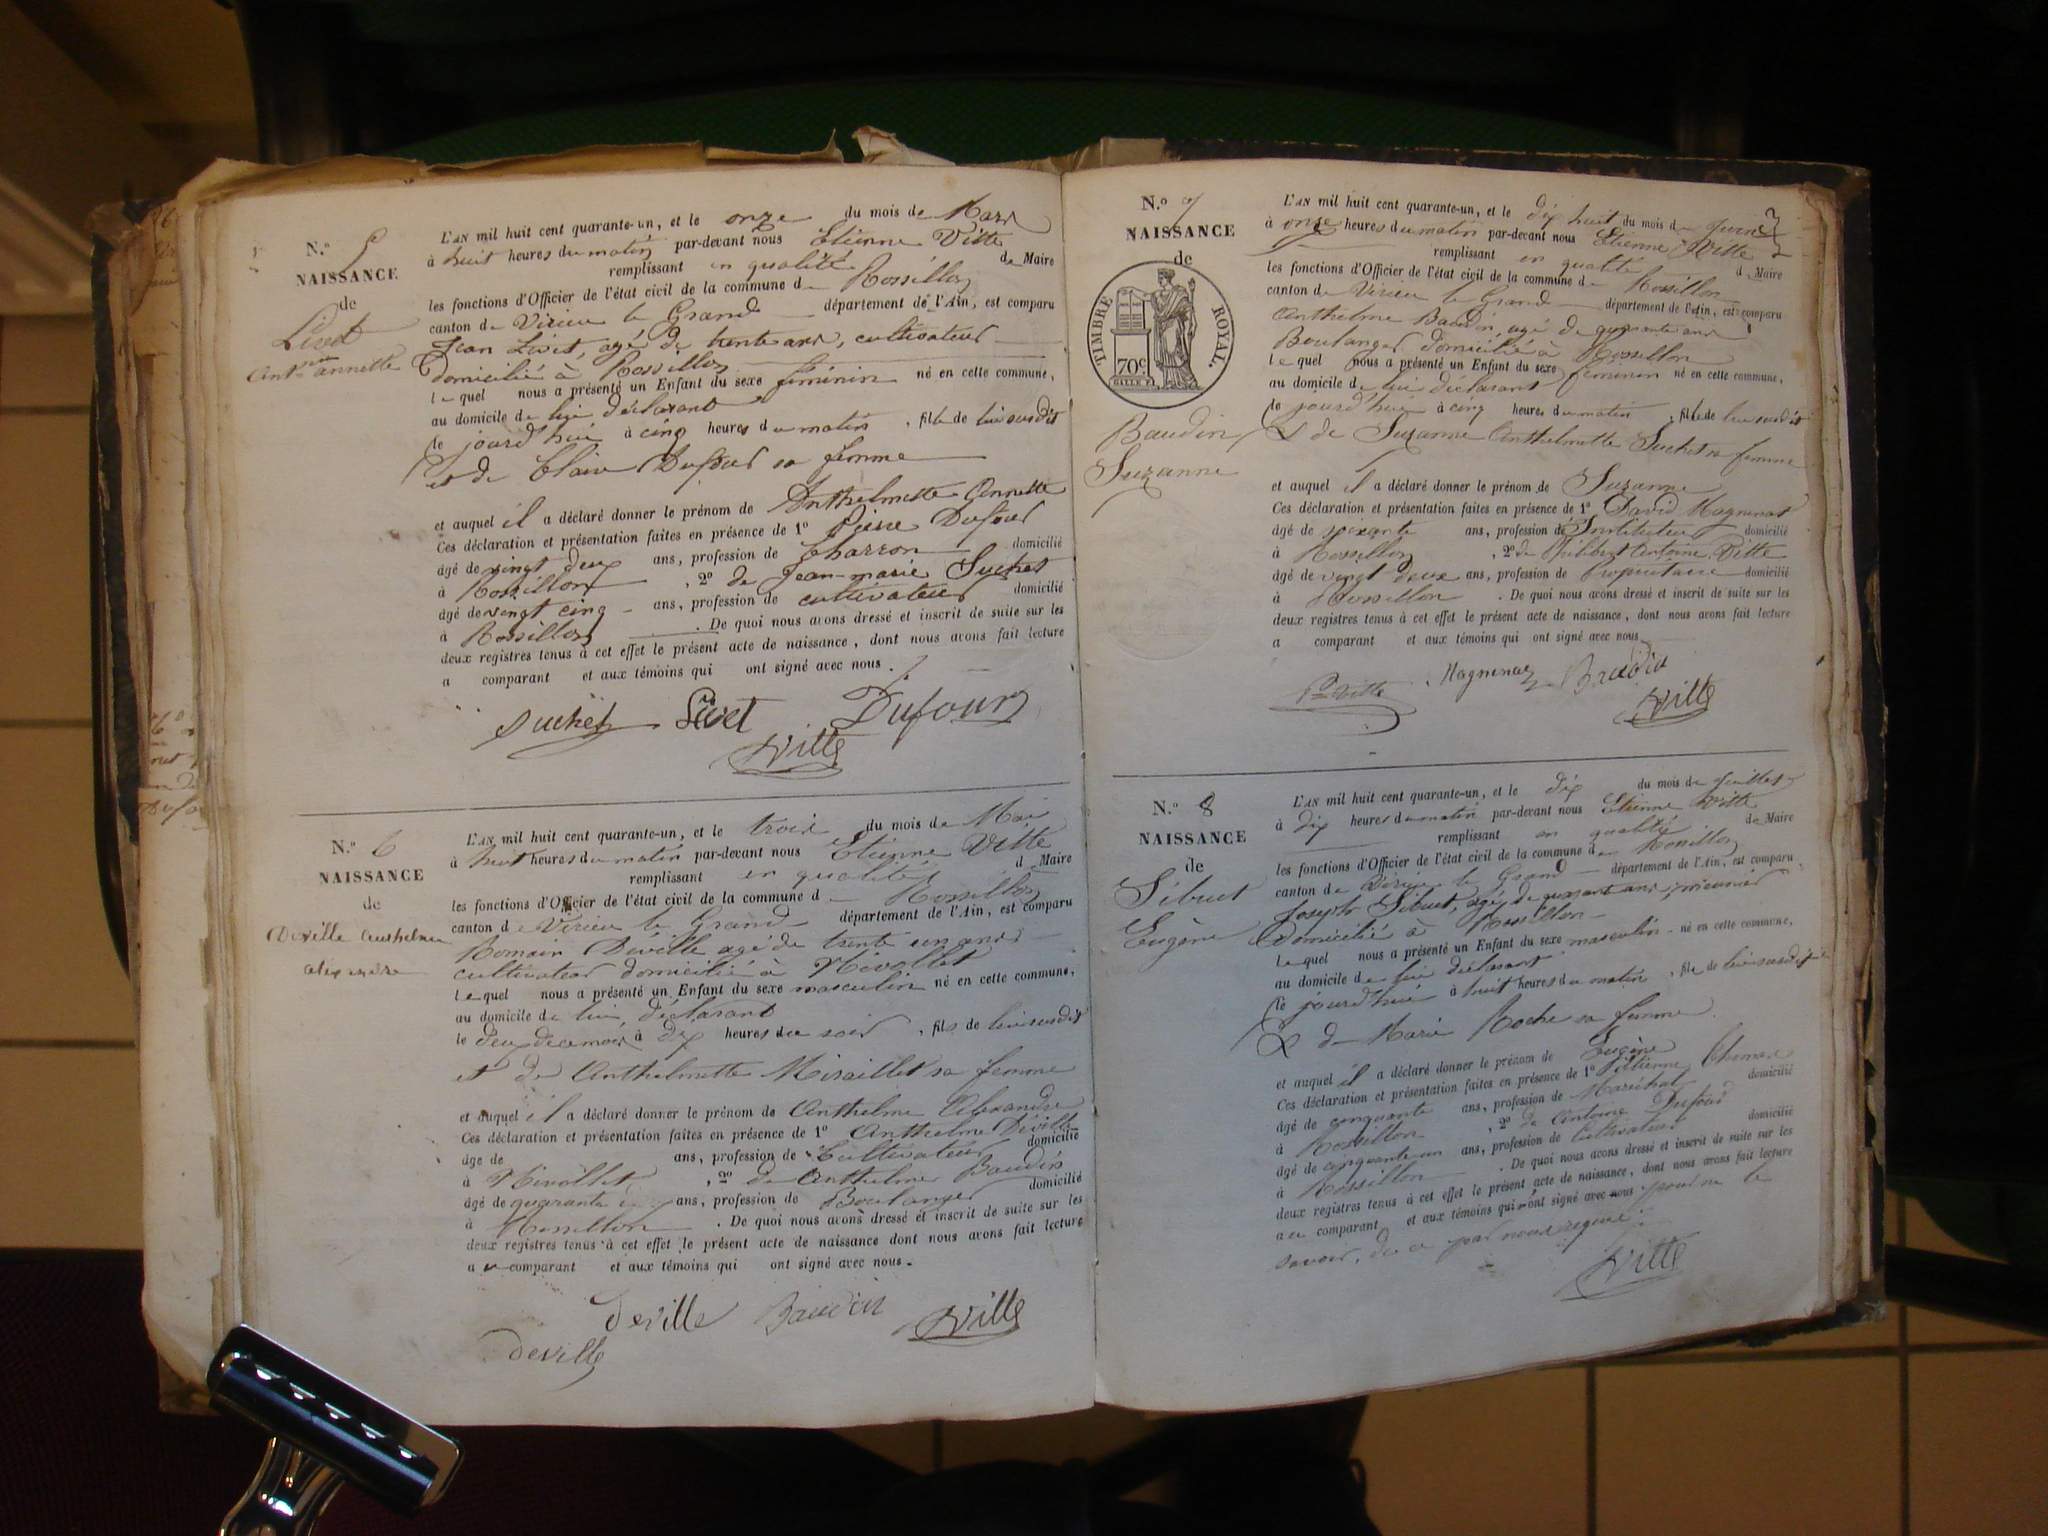 N.º 5
NAISSANCE
de
Livet
Ant.me annette
L'AN mil huit cent quarante-un, et le onze du mois de Mars
à huit heures du matin par-devant nous Etienne Vitte
remplissant en qualité de Maire
les fonctions d'Officier de l'état civil de la commune de Rossillon
canton de Virieu le Grand département de l'Ain, est comparu
Jean Livet, agé de trente ans, cultivateur
domicilié à Rossillon
lequel nous a présenté un Enfant du sexe féminin né en cette commune,
au domicile de lui déclarant
le jourd'hui à cinq heures du matin, fille de lui susdit
et de Claire Dufour sa femme
et auquel il a déclaré donner le prénom de Anthelmette Annette
Ces déclaration et présentation faites en présence de 1º Pierre Dufour
âgé de vingt deux ans, profession de Charron domicilié
à Rossillon, 2º de Jean-marie Suchet
âgé de vingt cinq ans, profession de cultivateur domicilié
à Rossillon. De quoi nous avons dressé et inscrit de suite sur les
deux registres tenus à cet effet le présent acte de naissance, dont nous avons fait lecture
a comparant et aux témoins qui ont signé avec nous.
Suchet Livet Dufour
Vitte
N.º 6
NAISSANCE
de
Deville Anthelme
alexandre
L'AN mil huit cent quarante-un, et le trois du mois de Mai
à huit heures du matin par-devant nous Etienne Vitte
remplissant en qualité d Maire
les fonctions d'Officier de l'état civil de la commune d Rossillon
canton de Virieu le Grand département de l'Ain, est comparu
Romain Déville agé de trente un ans
cultivateur domicilié à Nivollet
lequel nous a présenté un Enfant du sexe masculin né en cette commune,
au domicile de lui déclarant
le deux de ce mois à dix heures du soir, fils de lui susdit
et de Anthelmette Miraillet sa femme
et auquel il a déclaré donner le prénom de Anthelme Alexandre
Ces déclaration et présentation faites en présence de 1º Anthelme Déville
âge de ans, profession de Cultivateur domicilié
à Nivollet, 2º de Anthelme Baudin
âgé de quarante ans, profession de Boulanger domicilié
à Rossillon. De quoi nous avons dressé et inscrit de suite sur les
deux registres tenus à cet effet le présent acte de naissance dont nous avons fait lecture
au comparant et aux témoins qui ont signé avec nous.
deville Baudin Vitte
deville
N.º 7
NAISSANCE
de
TIMBRE ROYAL.
70c
Baudin
Suzanne
L'AN mil huit cent quarante-un, et le dix huit du mois de Juin
à onze heures du matin par-devant nous Etienne Vitte
remplissant en qualité d Maire
les fonctions d'Officier de l'état civil de la commune de Rossillon
canton de Virieu le Grand département de l'Ain, est comparu
Anthelme Baudin, agé de quarante ans
Boulanger domicilié à Rossillon
lequel nous a présenté un Enfant du sexe féminin né en cette commune,
au domicile de lui déclarant
le jourd'hui à cinq heures du matin, fille de lui susdit
& de Suzanne Anthelmette Suchet sa femme
et auquel il a déclaré donner le prénom de Suzanne
Ces déclaration et présentation faites en présence de 1º David Magninat
âgé de soixante ans, profession de Instituteur domicilié
à Rossillon, 2º de Philibert Antoine Vitte
âgé de vingt deux ans, profession de Propriétaire domicilié
à Rossillon. De quoi nous avons dressé et inscrit de suite sur les
deux registres tenus à cet effet le présent acte de naissance, dont nous avons fait lecture
a comparant et aux témoins qui ont signé avec nous
Vitte Magninat Baudin
Vitte
N.º 8
NAISSANCE
de
Sibuet
Eugène
L'AN mil huit cent quarante-un, et le dix du mois de Juillet
à dix heures du matin par-devant nous Etienne Vitte
remplissant en qualité de Maire
les fonctions d'Officier de l'état civil de la commune de Rossillon
canton de Virieu le Grand département de l'Ain, est comparu
Joseph Sibuet, agé de quarante ans, meunier
domicilié à Rossillon
lequel nous a présenté un Enfant du sexe masculin né en cette commune,
au domicile de lui déclarant
le jourd'hui à huit heures du matin, fils de lui susdit
& de Marie Roche sa femme
et auquel il a déclaré donner le prénom de Eugène
Ces déclaration et présentation faites en présence de 1º
âgé de cinquante ans, profession de Maréchal domicilié
à Rossillon, 2º de Antoine Dufour
âgé de cinquante un ans, profession de Cultivateur domicilié
à Rossillon. De quoi nous avons dressé et inscrit de suite sur les
deux registres tenus à cet effet le présent acte de naissance, dont nous avons fait lecture
au comparant et aux témoins qui ont signé avec nous pour ne le
savoir, de ce par nous requis.
Vitte